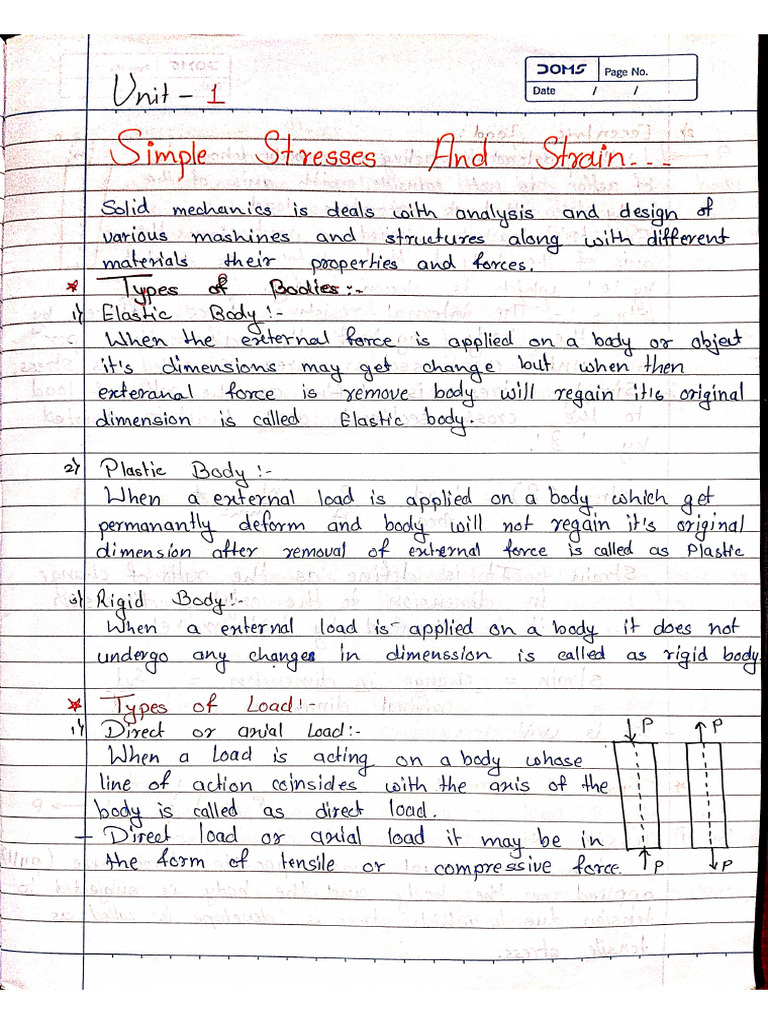 DOMS Page No.
Date / /
Unit - 1
Simple Stresses And Strain...
Solid mechanics is deals with analysis and design of
various mashines and structures along with different
materials their properties and forces.
* Types of Bodies:-
1) Elastic Body!-
When the external force is applied on a body or object
it's dimensions may get change but when then
exteranal force is remove body will regain it's original
dimension is called Elastic body.
2) Plastic Body !-
When a external load is applied on a body which get
permanantly deform and body will not regain it's original
dimension after removal of external force is called as Plastic
3) Rigid Body!-
When a external load is applied on a body it does not
undergo any changes in dimenssion is called as rigid body.
* Types of Load!-
1) Direct or axial Load:-
When a Load is acting on a body whose
line of action coinsides with the axis of the
body is called as direct load.
- Direct load or axial load it may be in
the form of tensile or compressive force.
P P
P P